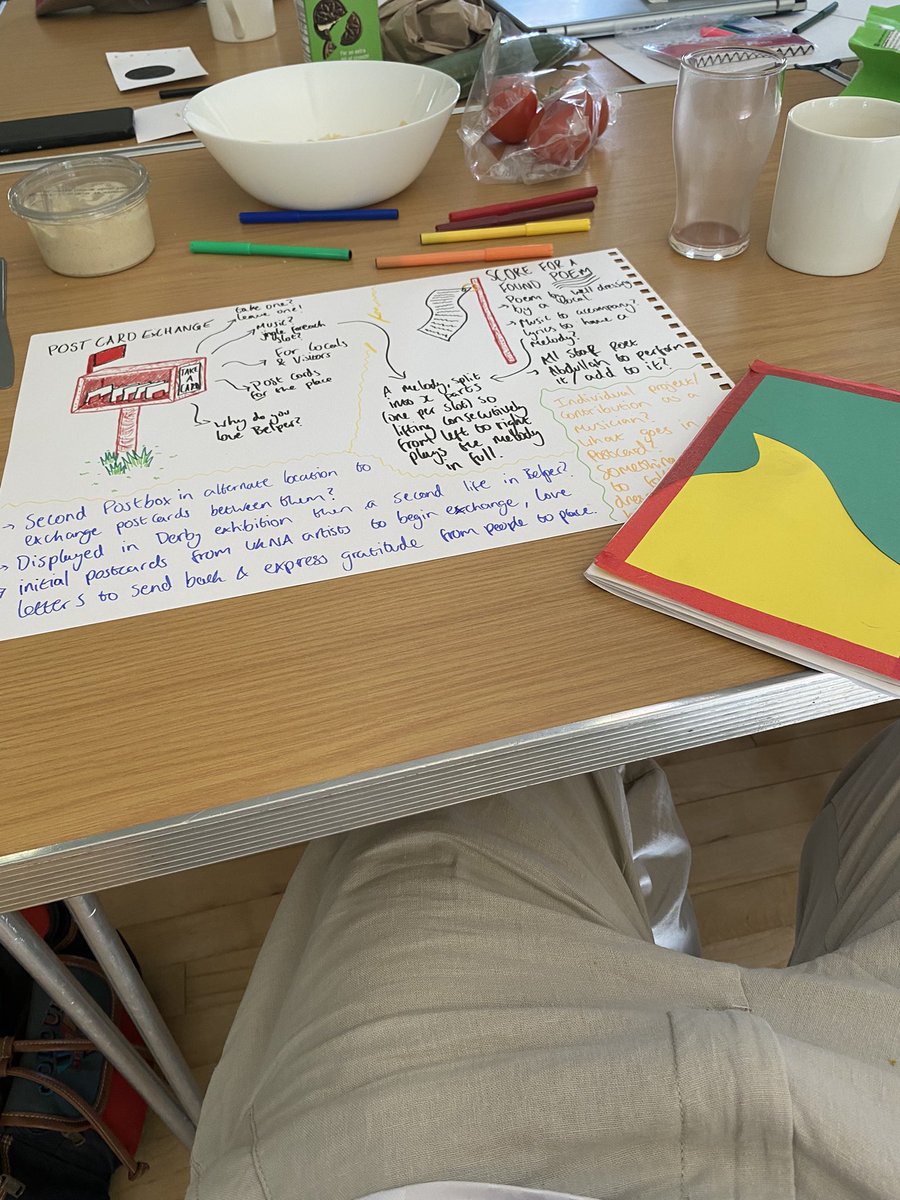 POST CARD EXCHANGE
take one?
leave one!
MUSIC?
slot?
For Locals
& Visitors
Post Cards
for the place
Why do you
love Belper?
TAKE
A
CARD
SCORE FOR A
FOUND POEM
Poem by well dressing
by a local
Music to accompany?
Lyrics to have a
melody?
Abdullah to perform
it / add to it?
A melody, split
into x parts
(one per slot) so
lifting consecutively
from left to right
plays the melody
in full.
Individual project/
contribution as a
Musician?
What goes in
Postcard?
Something
to
→ Second Postbox in alternate location to
exchange postcards between them?
→ Displayed in Derby exhibition then a second life in Belper?
→ initial postcards from UKNA artists to begin exchange, love
letters to send back & express gratitude from people to place.